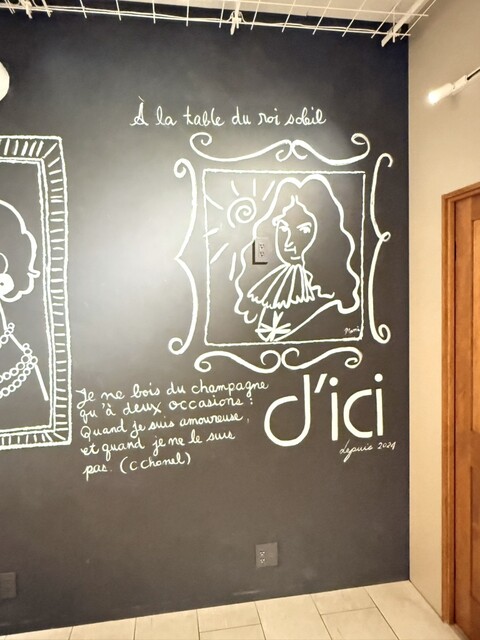 À la table du roi soleil
Je ne bois du champagne
qu'à deux occasions :
Quand je suis amoureuse,
et quand je ne le suis
pas. (CChanel)
d'ici
depuis 2024